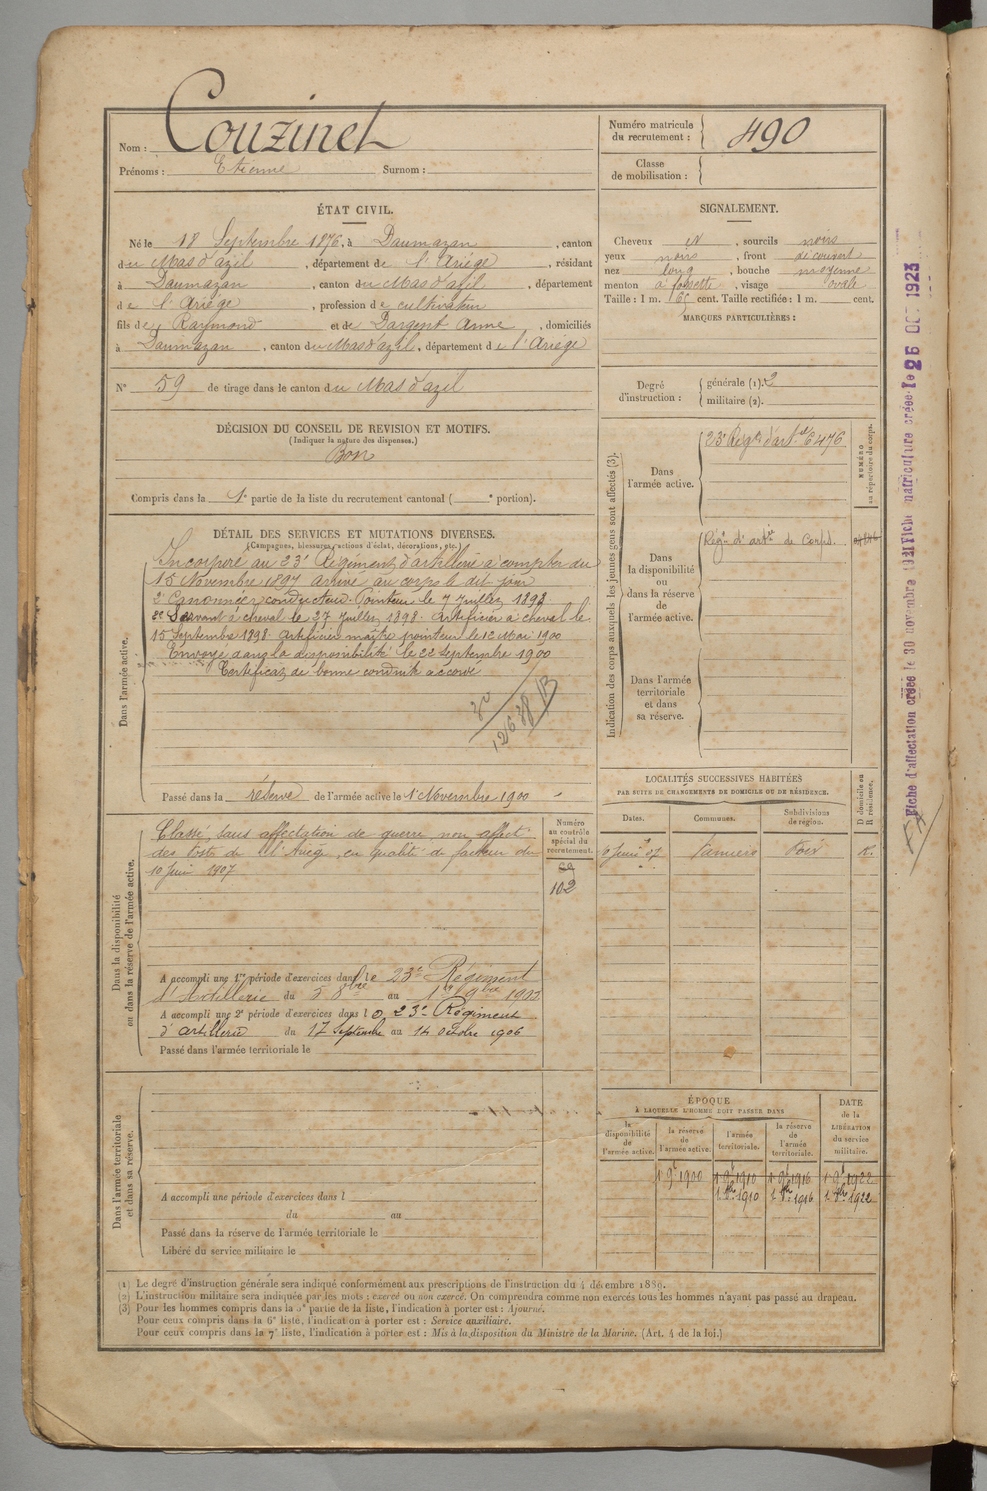 Nom : Couzinet
Prénoms : Etienne Surnom :
Numéro matricule du recrutement : 490
Classe de mobilisation :
ÉTAT CIVIL.
Né le 18 Septembre 1876, à Daumazan, canton
du Mas d'azil, département de l'Ariège, résidant
à Daumazan, canton du Mas d'azil, département
de l'Ariège, profession de cultivateur
fils de Raymond et de Dargent Anne, domiciliés
à Daumazan, canton du Mas d'azil, département de l'Ariège
N° 59 de tirage dans le canton du Mas d'azil
DÉCISION DU CONSEIL DE REVISION ET MOTIFS.
(Indiquer la nature des dispenses.)
Bon
Compris dans la 1e partie de la liste du recrutement cantonal ( e portion).
SIGNALEMENT.
Cheveux et, sourcils noirs
yeux noirs, front découvert
nez long, bouche moyenne
menton à fossette, visage ovale
Taille : 1 m. 65 cent. Taille rectifiée : 1 m. cent.
MARQUES PARTICULIÈRES :
Degré d'instruction : générale (1). 3
militaire (2).
Indication des corps auxquels les jeunes gens sont affectés (3).
Dans l'armée active.
23e Regt d'artie 6476
NUMÉRO au répertoire du corps.
Dans la disponibilité ou dans la réserve de l'armée active.
Régt d'artie de Corps.
Dans l'armée territoriale et dans sa réserve.
DÉTAIL DES SERVICES ET MUTATIONS DIVERSES.
(Campagnes, blessures, actions d'éclat, décorations, etc.)
Dans l'armée active.
Incorporé au 23e Régiment d'artillerie à compter du
15 Novembre 1897 arrivé au corps le dit jour
2e Canonnier conducteur Pointeur le 7 Juillet 1898
2e Servant à cheval le 27 Juillet 1898. Artificier à cheval le
15 Septembre 1898. Artificier maître pointeur le 12 Mai 1900
Envoyé dans la disponibilité le 22 septembre 1900
Certificat de bonne conduite accordé
Passé dans la réserve de l'armée active le 1 Novembre 1900
Dans la disponibilité ou dans la réserve de l'armée active.
Classé sans affectation de guerre non affecté
des Postes de l'Ariège, en qualité de facteur du
10 Juin 1907
Numéro au contrôle spécial du recrutement.
102
A accompli une 1re période d'exercices dans le 23e Régiment
d'Artillerie du 5 8bre au 1er 9bre 1903
A accompli une 2e période d'exercices dans le 23e Régiment
d'artillerie du 17 septembre au 14 octobre 1906
Passé dans l'armée territoriale le
LOCALITÉS SUCCESSIVES HABITÉES
PAR SUITE DE CHANGEMENTS DE DOMICILE OU DE RÉSIDENCE.
Dates. Communes. Subdivisions de région. D domicile ou R résidence.
6 Juin 07 Pamiers Foix R.
Dans l'armée territoriale et dans sa réserve.
A accompli une période d'exercices dans l
du au
Passé dans la réserve de l'armée territoriale le
Libéré du service militaire le
ÉPOQUE
À LAQUELLE L'HOMME DOIT PASSER DANS
la disponibilité de l'armée active. la réserve de l'armée active. l'armée territoriale. la réserve de l'armée territoriale.
DATE de la LIBÉRATION du service militaire.
1 9e 1900 1 9e 1910 1 9e 1916 1 9e 1922
1. 8bre 1910 1. 8bre 1916 1. 8bre 1922
(1) Le degré d'instruction générale sera indiqué conformément aux prescriptions de l'instruction du 4 décembre 1889.
(2) L'instruction militaire sera indiquée par les mots : exercé ou non exercé. On comprendra comme non exercés tous les hommes n'ayant pas passé au drapeau.
(3) Pour les hommes compris dans la 5e partie de la liste, l'indication à porter est : Ajourné.
Pour ceux compris dans la 6e liste, l'indication à porter est : Service auxiliaire.
Pour ceux compris dans la 7e liste, l'indication à porter est : Mis à la disposition du Ministre de la Marine. (Art. 4 de la loi.)
Fiche d'affectation créée le 30 novembre Fiche matriculaire créée le 26 OCT 1923